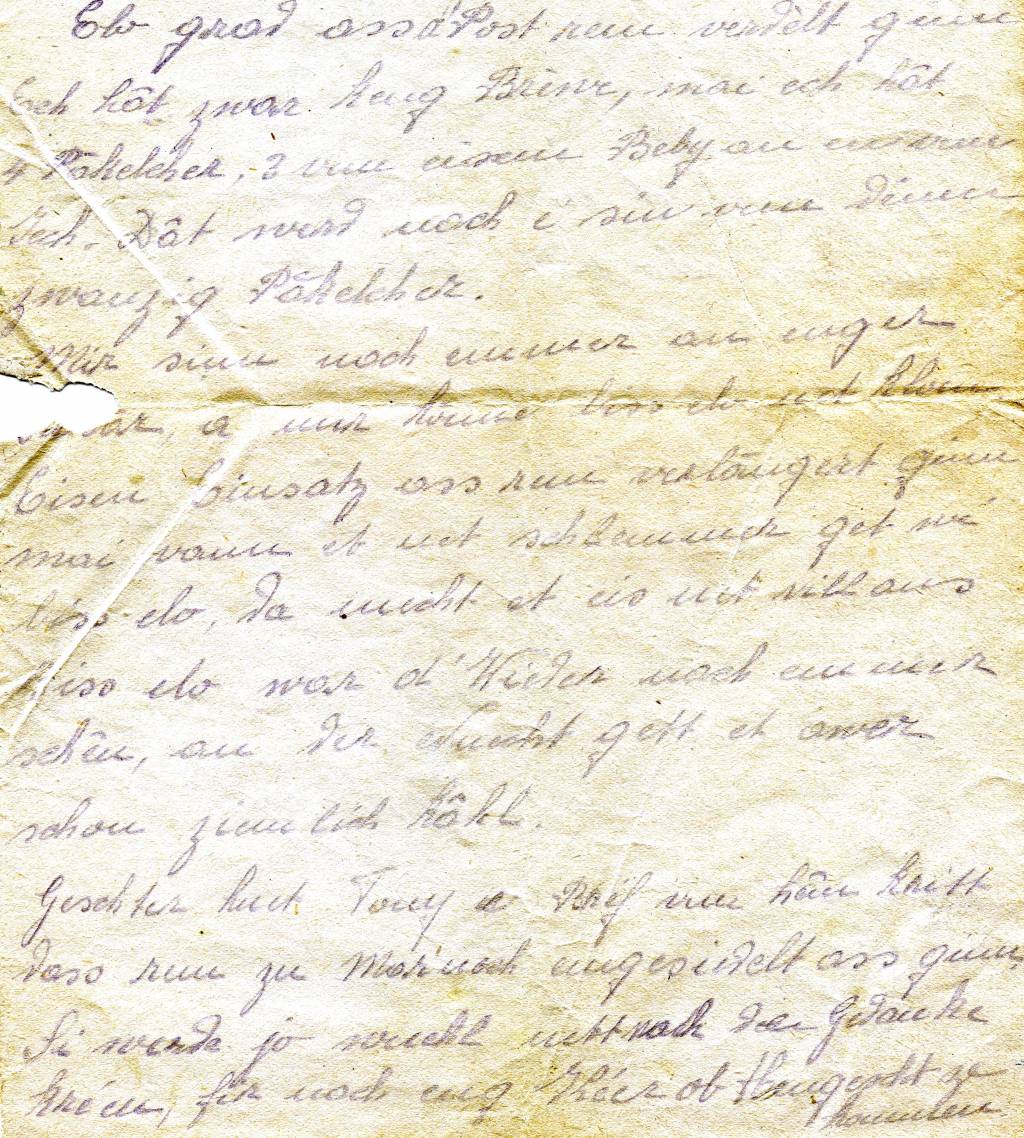 Elo grad ass d'Post rem verdêlt ginn
Ech hât zwar keng Brêiw, mai ech hât
4 Päkelcher, 3 vun eisem Beby an eent vum
Tech. Dât werd noch i sin vun denen
zwanzig Päkelcher.
Mir sinn noch emmer an enger
a mir komme biss elo net
Eisen Einsatz ass rem verlängert ginn
mai wann et net schlemmer get wi
biss elo, da mecht et eis net vill aus
Biss elo war d'Wieder noch emmer
schên, an der Nuecht gett et awer
schon ziemlich kâhl.
Geschter huet Tony e Brêf vun hêm kritt
dass rem zu Marnoch emgesidelt ass ginn.
Si werde jo wuehl nett nach den Gedanke
kréen, fir noch eng Kéer ob Hengescht ze
kommen